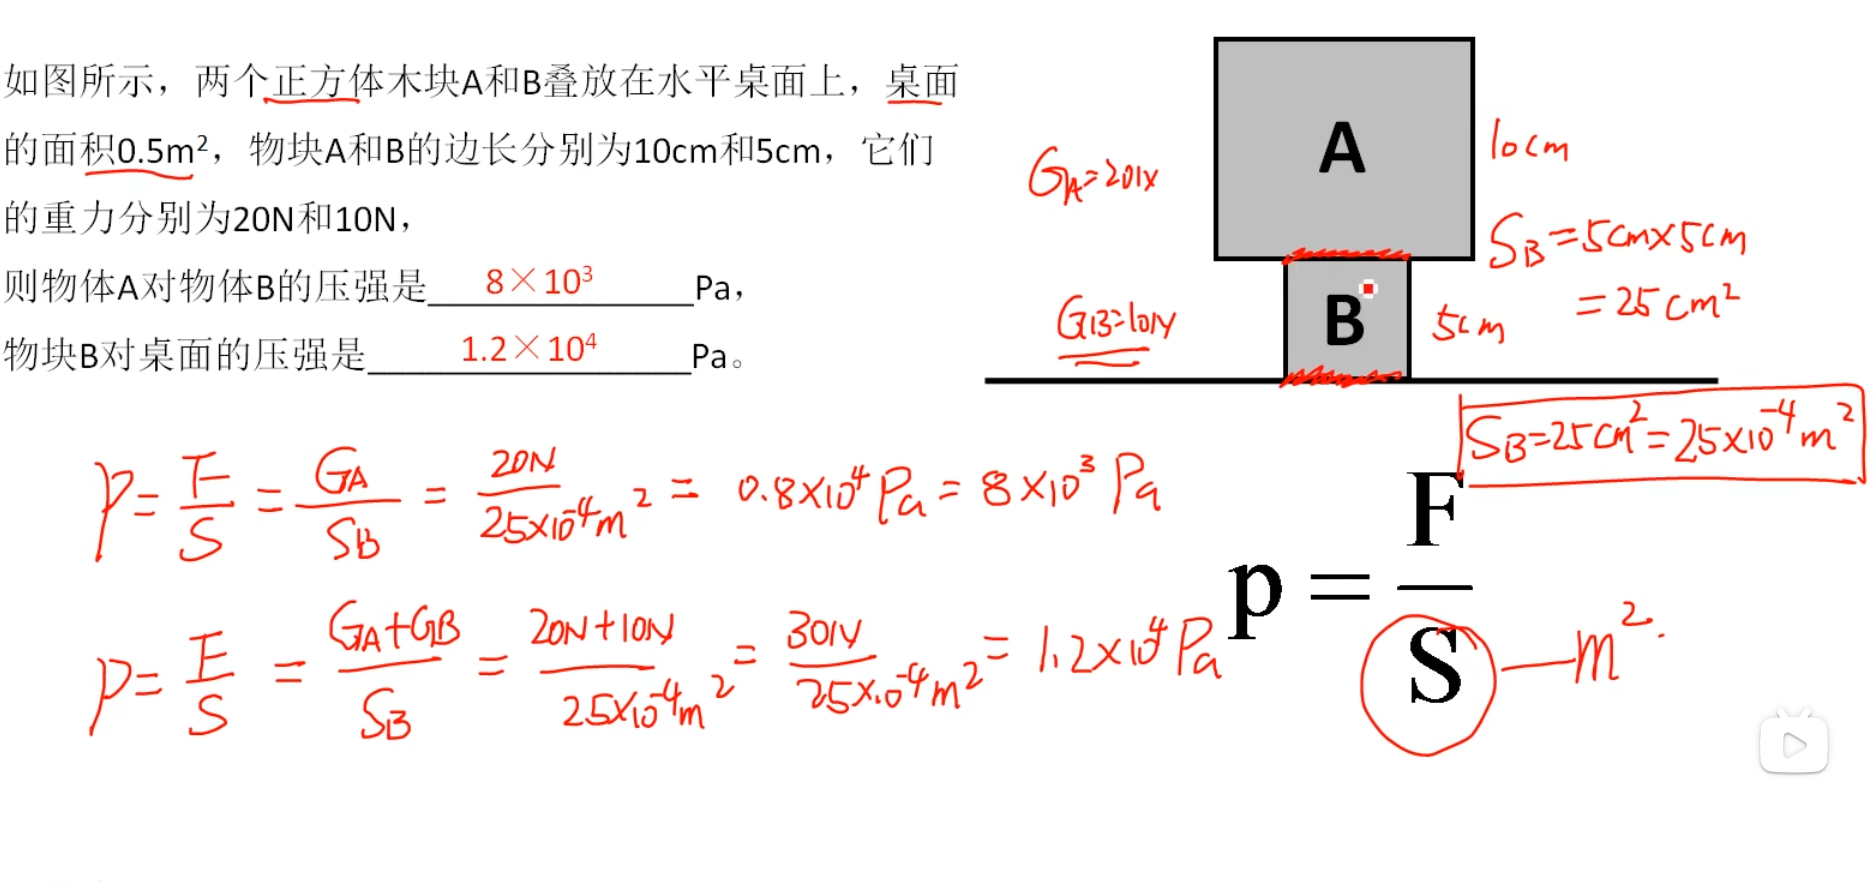 如图所示，两个正方体木块A和B叠放在水平桌面上，桌面
的面积0.5m²，物块A和B的边长分别为10cm和5cm，它们
的重力分别为20N和10N，
则物体A对物体B的压强是 8×10³ Pa，
物块B对桌面的压强是 1.2×10⁴ Pa。
A
10cm
G_A=20N
S_B=5cm×5cm
=25cm²
B
5cm
G_B=10N
S_B=25cm²=25×10⁻⁴m²
P=F/S=G_A/S_B=20N/25×10⁻⁴m²=0.8×10⁴Pa=8×10³Pa
p=F/S
m².
P=F/S=G_A+G_B/S_B=20N+10N/25×10⁻⁴m²=30N/25×10⁻⁴m²=1.2×10⁴Pa